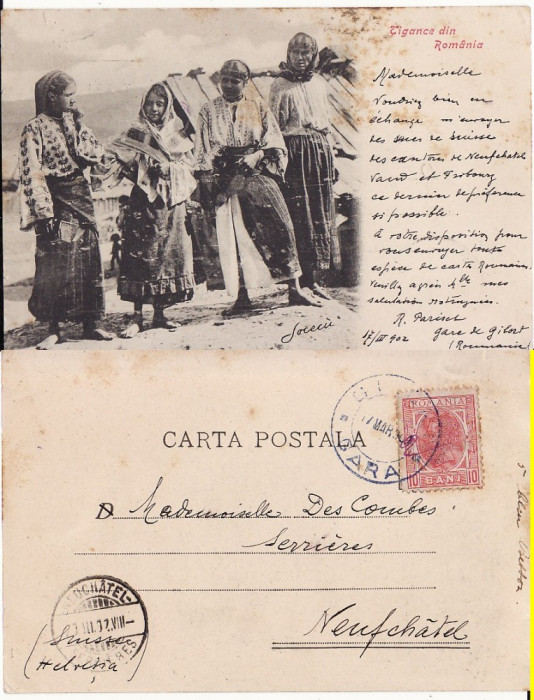 Țigance din
România
Mademoiselle
Voudriez bien en
échange m'envoyer
des vues de Suisse
des cantons de Neufchatel
Vaud et Fribourg
ce dernier de préférence
si possible.
A votre disposition pour
vous envoyer toute
espèce de carte Roumaine.
Veuillez agréer Mlle mes
salutations
R. Pariset
17/III 902 gare de Gilort
(Roumanie)
Socecu
CARTA POSTALA
17 MAR
GARA
ROMANIA
10 BANI 10
Mademoiselle Des Combes
Serrières
Neufchâtel
(Suisse
Helvetia)
NEUCHÂTEL-